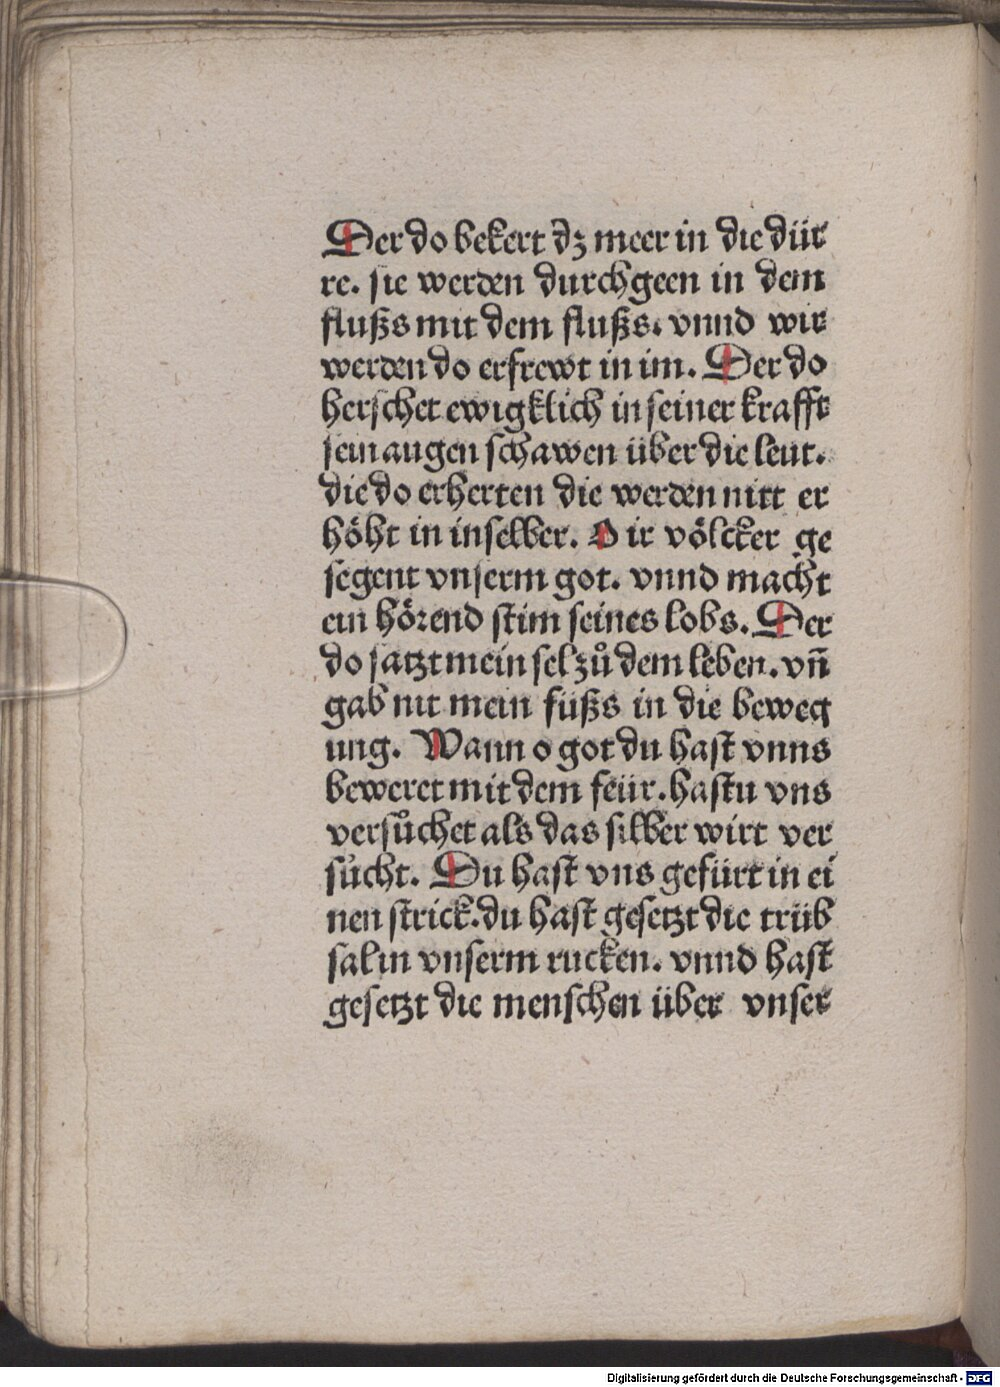 Der do bekert dz meer in die dür
re. sie werden durchgeen in dem
flußs mit dem flußs. vnnd wir
werden do erfrewt in im. Der do
herschet ewigklich in seiner krafft
sein augen schawen über die leut.
die do erherten die werden nitt er
höht in inselber. O ir völcker ge
segent vnserm got. vnnd macht
ein hörend stim seines lobs. Der
do satzt mein sel zů dem leben. vñ
gab nit mein füßs in die beweg
ung. Wann o got du hast vnns
beweret mit dem feür. hastu vns
versůchet als das silber wirt ver
sůcht. Du hast vns gefürt in ei
nen strick. du hast gesetzt die trüb
sal in vnserm rucken. vnnd hast
gesetzt die menschen über vnser
Digitalisierung gefördert durch die Deutsche Forschungsgemeinschaft - DFG